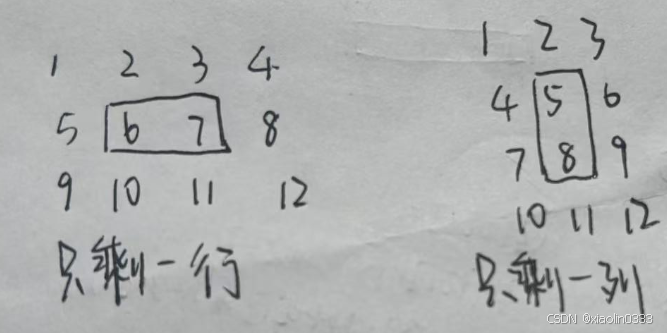 1 2 3 4
5 6 7 8
9 10 11 12
只剩一行
1 2 3
4 5 6
7 8 9
10 11 12
只剩一列
CSDN @xiaolin0333